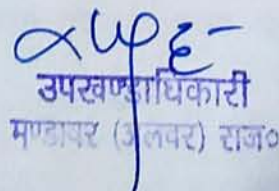 उपखण्डाधिकारी
मण्डावर (अलवर) राज०